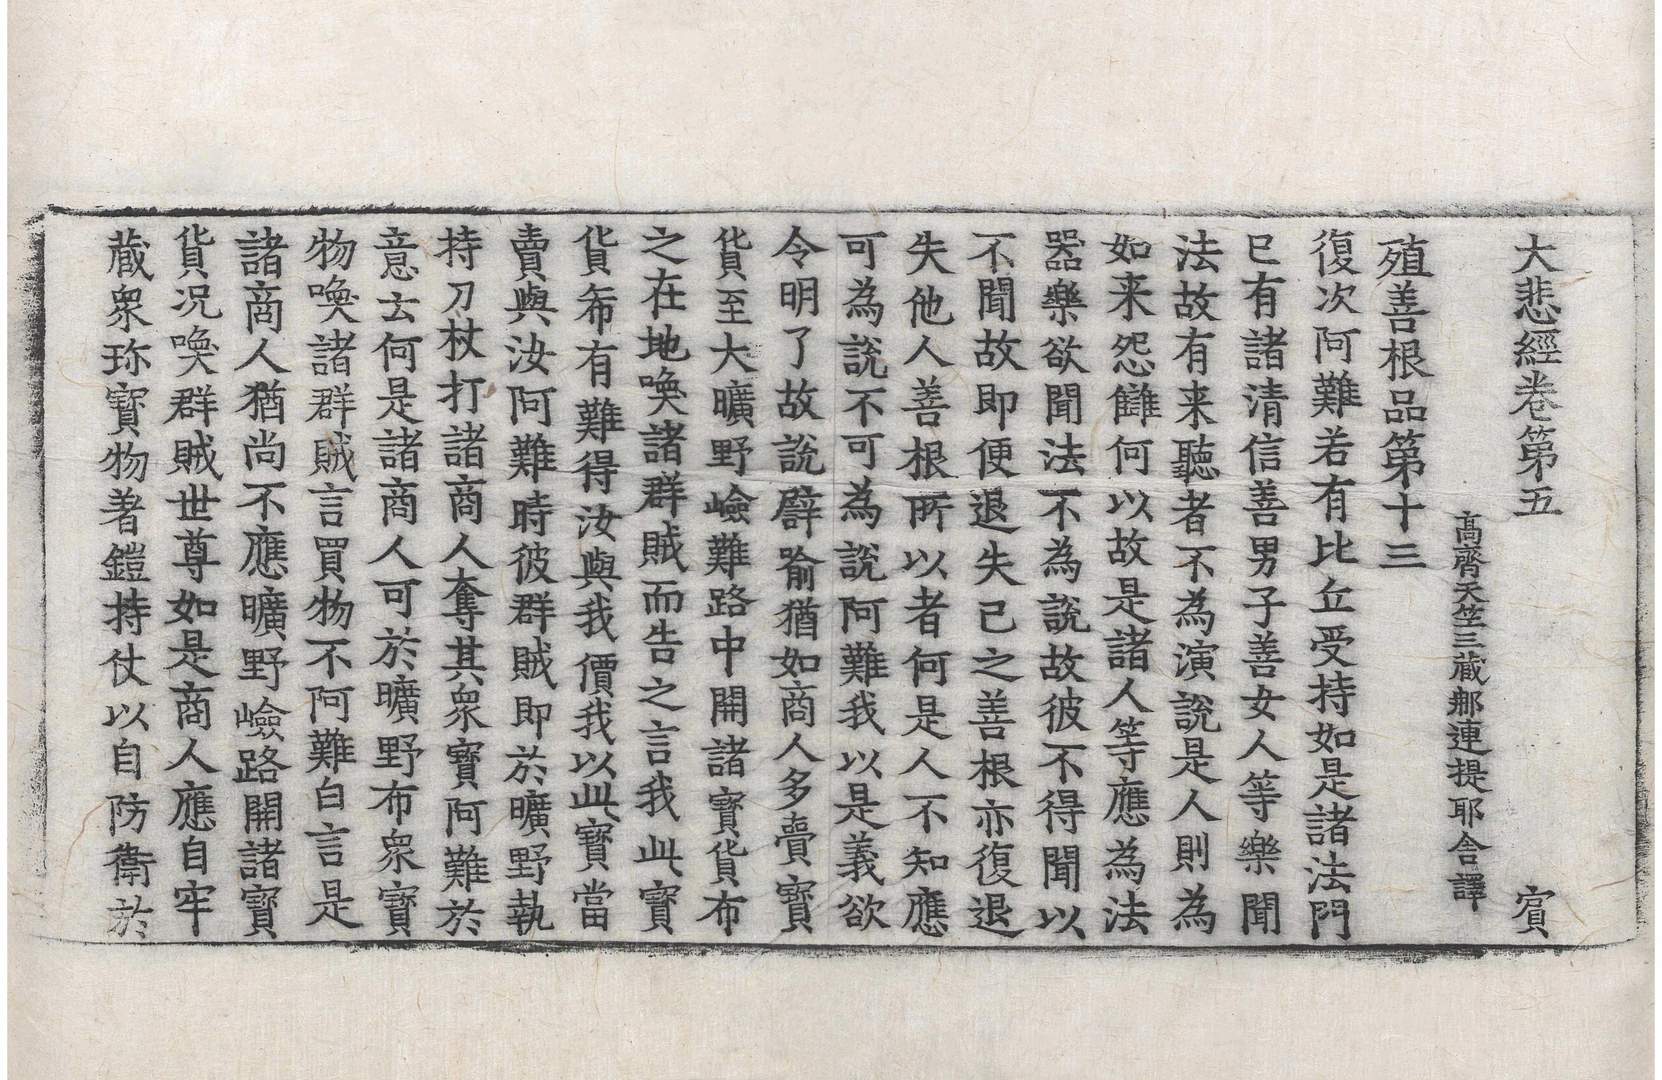 大悲經卷第五 賔
高齊天竺三藏那連提耶舍譯
殖善根品第十三
復次阿難若有比丘受持如是諸法門
已有諸清信善男子善女人等樂聞
法故有来聽者不為演說是人則為
如来怨讎何以故是諸人等應為法
器樂欲聞法不為說故彼不得聞以
不聞故即便退失已之善根亦復退
失他人善根所以者何是人不知應
可為說不可為說阿難我以是義欲
令明了故說譬喻猶如商人多賣寶
貨至大曠野嶮難路中開諸寶貨布
之在地喚諸群賊而告之言我此寶
貨布有難得汝與我價我以此寶當
賣與汝阿難時彼群賊即於曠野執
持刀杖打諸商人奪其衆寶阿難於
意云何是諸商人可於曠野布衆寶
物喚諸群賊言買物不阿難白言是
諸商人猶尚不應曠野嶮路開諸寶
貨况喚群賊世尊如是商人應自牢
藏衆珎寶物著鎧持仗以自防衛於